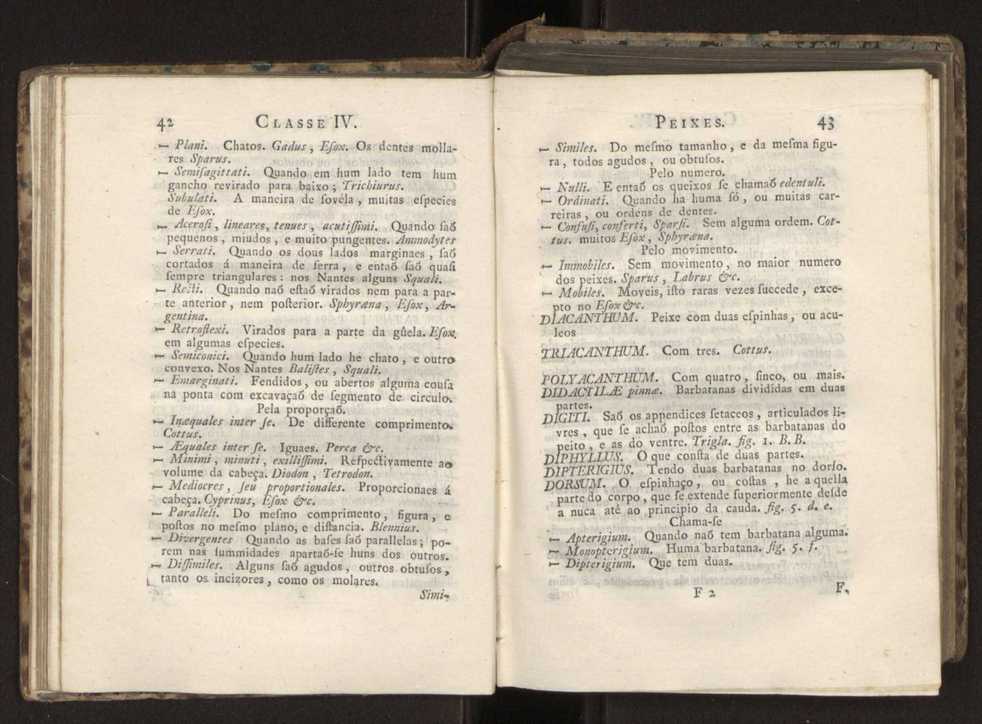 42 CLASSE IV.
— Plani. Chatos. Gadus, Eſox. Os dentes molla-
res Sparus.
— Semiſagittati. Quando em hum lado tem hum
gancho revirado para baixo; Trichiurus.
Subulati. A maneira de ſovéla, muitas eſpecies
de Eſox.
— Aceroſi, lineares, tenues, acutiſſimi. Quando ſaõ
pequenos, miudos, e muito pungentes. Ammodytes
— Serrati. Quando os dous lados marginaes, ſaõ
cortados á maneira de ſerra, e entaõ ſaõ quaſi
ſempre triangulares: nos Nantes alguns Squali.
— Recti. Quando naõ eſtaõ virados nem para a par-
te anterior, nem poſterior. Sphyræna, Eſox, Ar-
gentina.
— Retroflexi. Virados para a parte da gûela. Eſox.
em algumas eſpecies.
— Semiconici. Quando hum lado he chato, e outro
convexo. Nos Nantes Baliſtes, Squali.
— Emarginati. Fendidos, ou abertos alguma couſa
na ponta com excavaçaõ de ſegmento de circulo.
Pela proporçaõ.
— Inæquales inter ſe. De differente comprimento.
Cottus.
— Æquales inter ſe. Iguaes. Perca &c.
— Minimi, minuti, exilliſſimi. Reſpectivamente ao
volume da cabeça. Diodon, Tetrodon.
— Mediocres, ſeu proportionales. Proporcionaes á
cabeça. Cyprinus, Eſox &c.
— Paralleli. Do meſmo comprimento, figura, e
poſtos no meſmo plano, e diſtancia. Blennius.
— Divergentes Quando as baſes ſaõ parallelas; po-
rem nas ſummidades apartaõ-ſe huns dos outros.
— Diſſimiles. Alguns ſaõ agudos, outros obtuſos,
tanto os incizores, como os molares.
Simi-
PEIXES. 43
— Similes. Do meſmo tamanho, e da meſma figu-
ra, todos agudos, ou obtuſos.
Pelo numero.
— Nulli. E entaõ os queixos ſe chamaõ edentuli.
— Ordinati. Quando ha huma ſó, ou muitas car-
reiras, ou ordens de dentes.
— Confuſi, conferti, Sparſi. Sem alguma ordem. Cot-
tus. muitos Eſox, Sphyræna.
Pelo movimento.
— Immobiles. Sem movimento, no maior numero
dos peixes. Sparus, Labrus &c.
— Mobiles. Moveis, iſto raras vezes ſuccede, exce-
pto no Eſox &c.
DIACANTHUM. Peixe com duas eſpinhas, ou acu-
leos
TRIACANTHUM. Com tres. Cottus.
POLYACANTHUM. Com quatro, ſinco, ou mais.
DIDACTILÆ pinnæ. Barbatanas divididas em duas
partes.
DIGITI. Saõ os appendices ſetaceos, articulados li-
vres, que ſe achaõ poſtos entre as barbatanas do
peito, e as do ventre. Trigla. fig. 1. B. B.
DIPHYLLUS. O que conſta de duas partes.
DIPTERIGIUS. Tendo duas barbatanas no dorſo.
DORSUM. O eſpinhaço, ou coſtas, he aquella
parte do corpo, que ſe extende ſuperiormente deſde
a nuca atê ao principio da cauda. fig. 5. d. e.
Chama-ſe
— Apterigium. Quando naõ tem barbatana alguma.
— Monopterigium. Huma barbatana. fig. 5. f.
— Dipterigium. Que tem duas.
F 2 F.